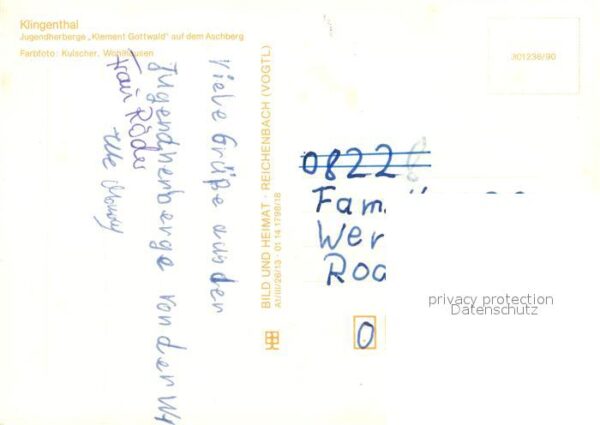 Klingenthal
Jugendherberge „Klement Gottwald" auf dem Aschberg
Farbfoto: Kutscher, Wohlhausen
301236/90
Viele Grüße aus der
Jugendherberge von der
Frau Röder
BILD UND HEIMAT · REICHENBACH (VOGTL)
A1/III/26/13 · 01 14 1798/18
0822
Fam
Wer
Roc
0
privacy protection
Datenschutz